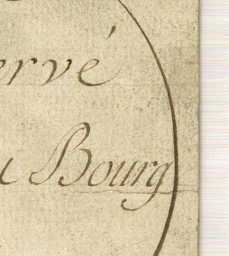 ervé
u Bourg